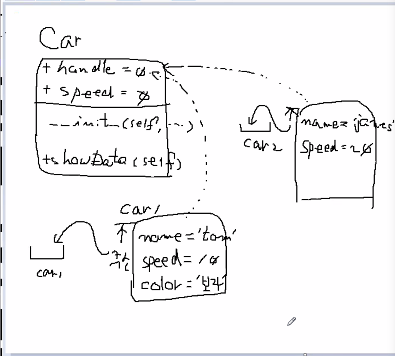 Car
+ handle = 0
+ speed = 0
__init(self, ...)
+showData(self)
name = 'james'
speed = 20
car2
car1
name = 'tom'
speed = 10
color = '보라'
car1